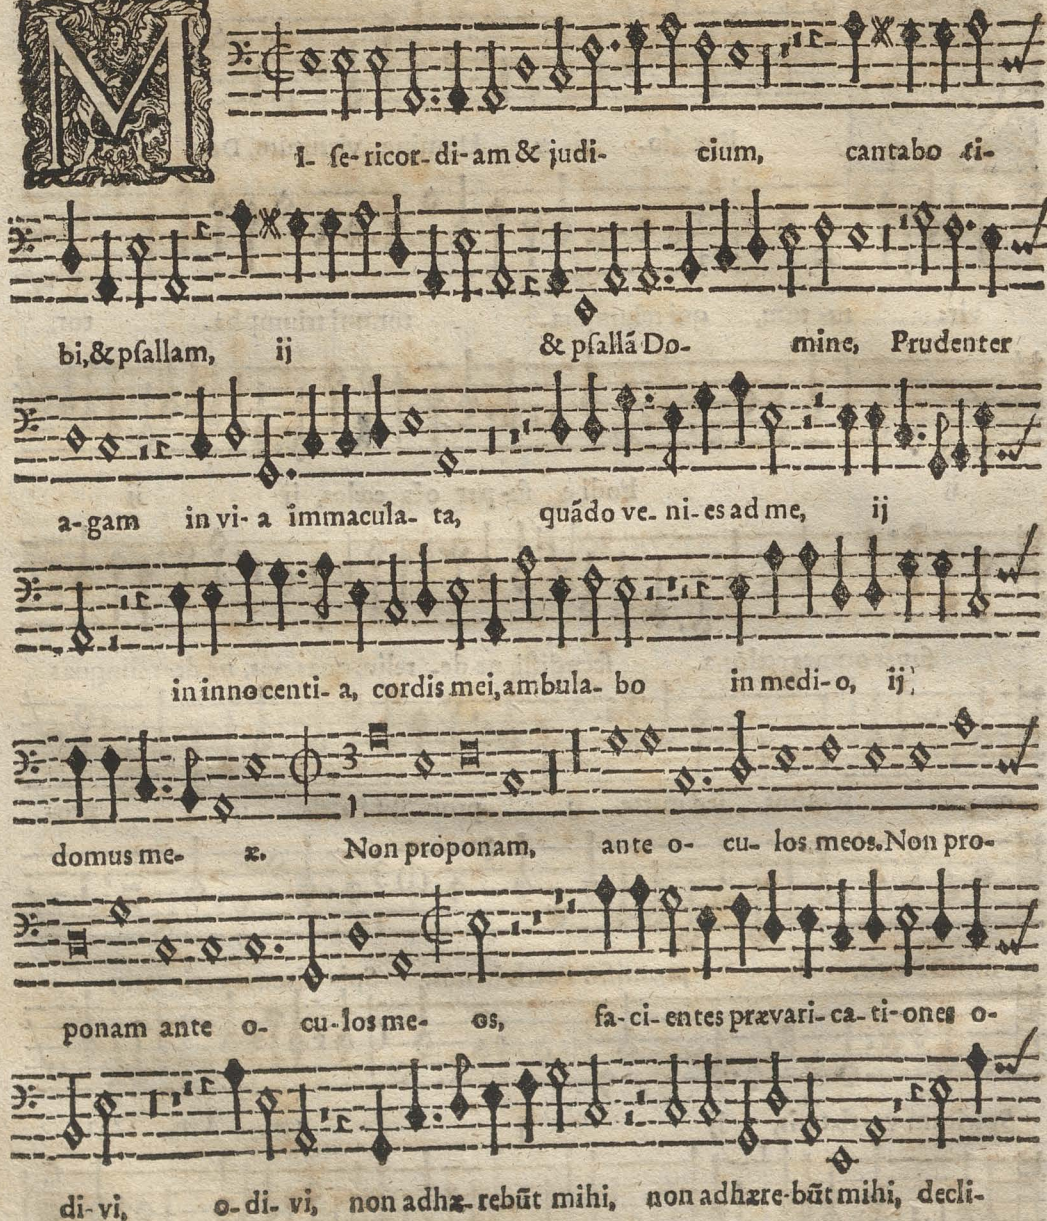 MI- se-ricor-di-am & judi- cium, cantabo ti-
bi, & psallam, ij & psallã Do- mine, Prudenter
a-gam in vi-a immacula- ta, quãdo ve-ni-es ad me, ij
in innocenti-a, cordis mei, ambula-bo in medi-o, ij
domus me- æ. Non proponam, ante o- cu- los meos. Non pro-
3
1
ponam ante o- cu-los me- os, fa-ci-entes prævari-ca-ti-ones o-
di-vi, o-di-vi, non adhæ-rebũt mihi, non adhære-bũt mihi, decli-